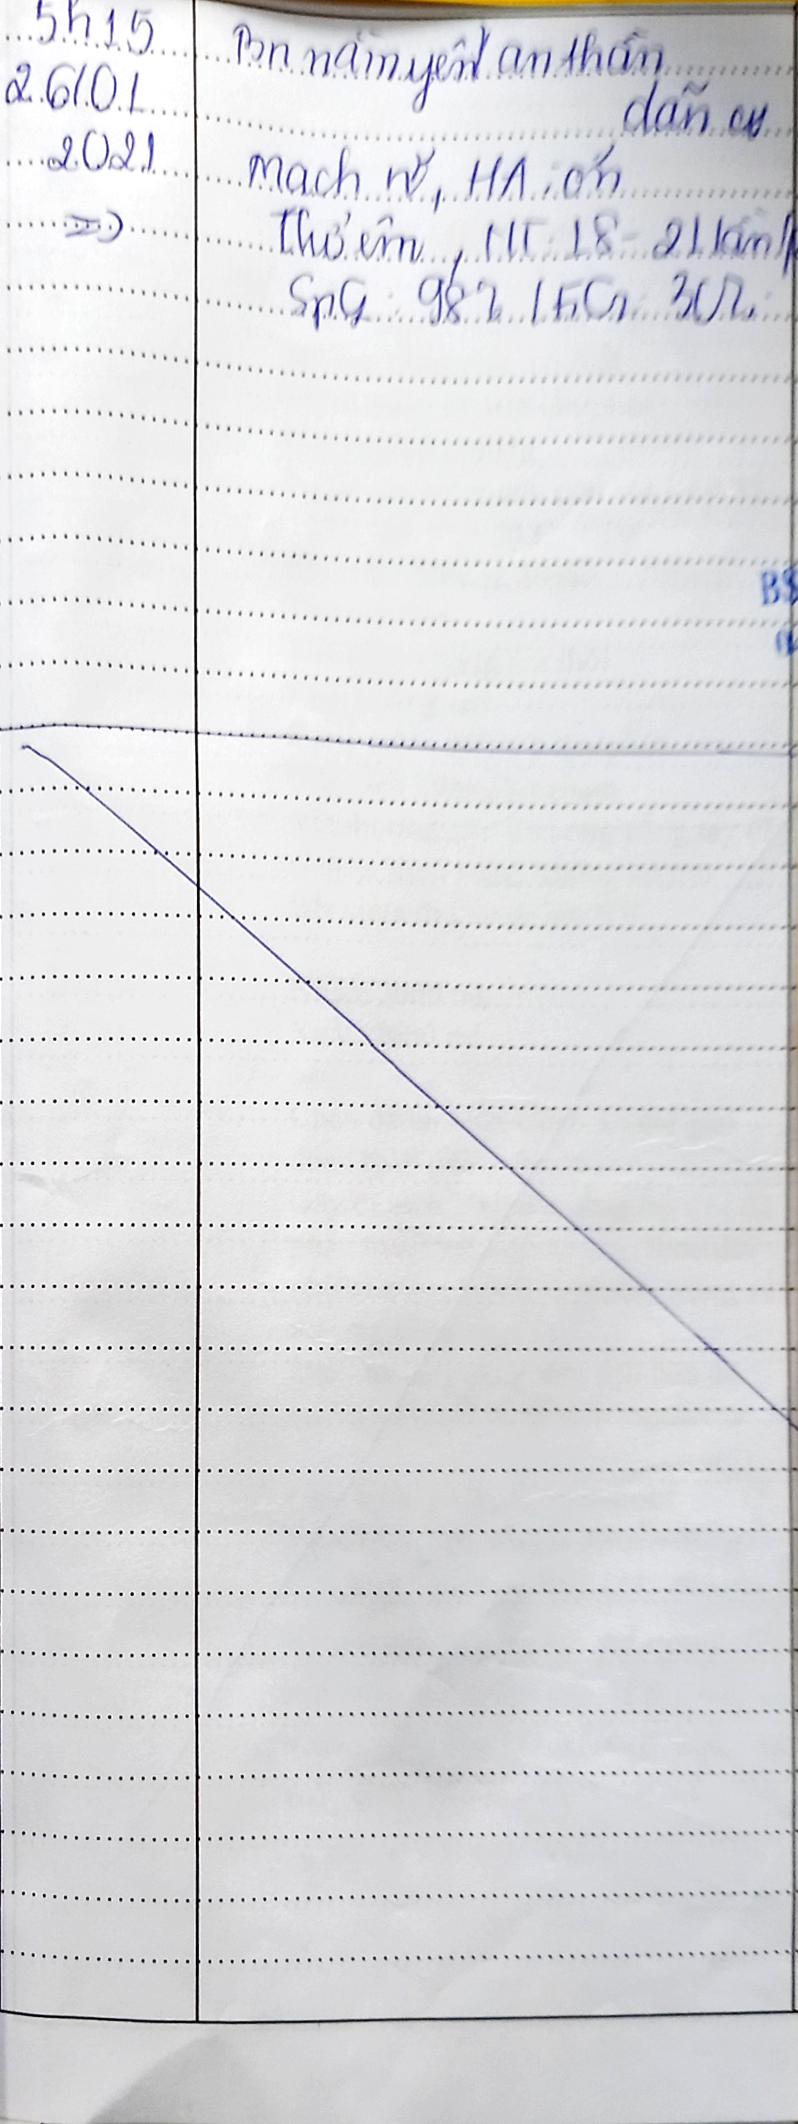 5h15
26/01
2021
=>
Bn nằm yên an thần
dãn cơ
Mạch rõ, HA: ổn
Thở êm, NT: 18 - 21 lần/p
SpO2: 98%
BS